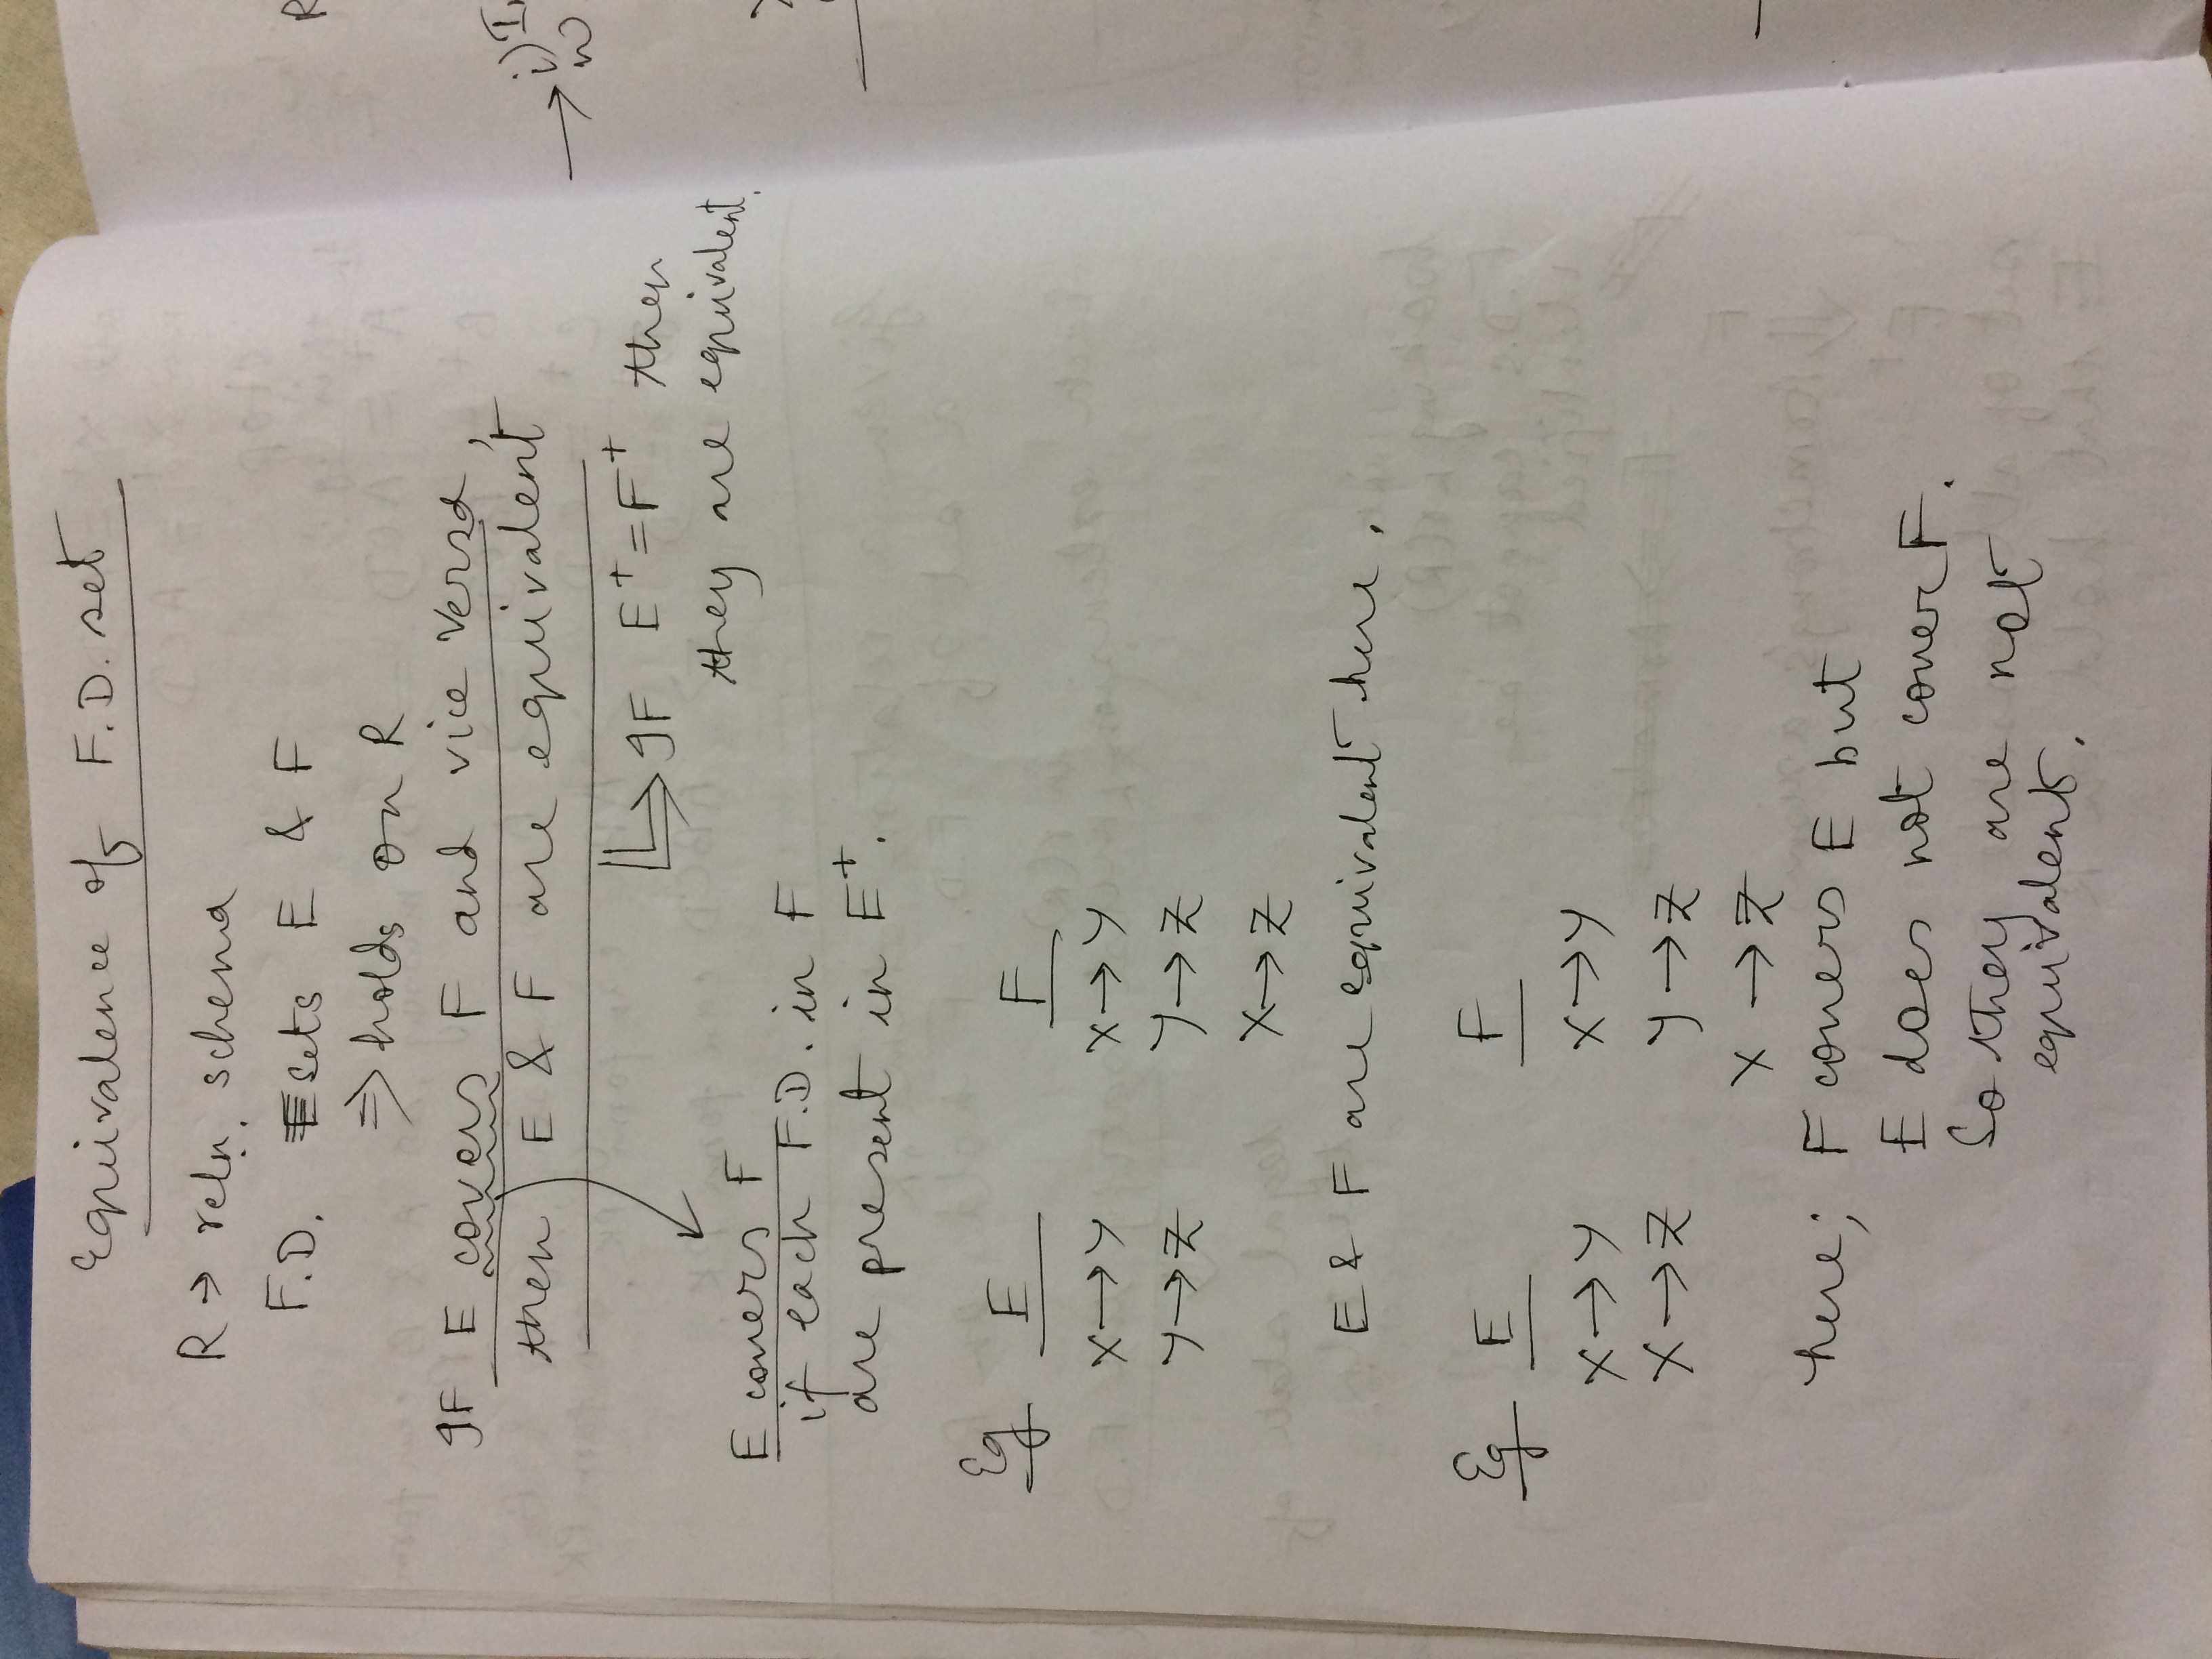 Equivalence of F.D. set
R → reln. schema
F.D. sets E & F
⇒ holds on R
If E covers F and vice versa,
then E & F are equivalent
If E⁺ = F⁺ then
they are equivalent.
E covers F
if each F.D. in F
are present in E⁺.
Eg E F
X→Y X→Y
Y→Z Y→Z
X→Z
E & F are equivalent here.
Eg E F
X→Y X→Y
X→Z Y→Z
X→Z
here; F covers E but
E does not cover F.
So they are not
equivalent.
R
i)